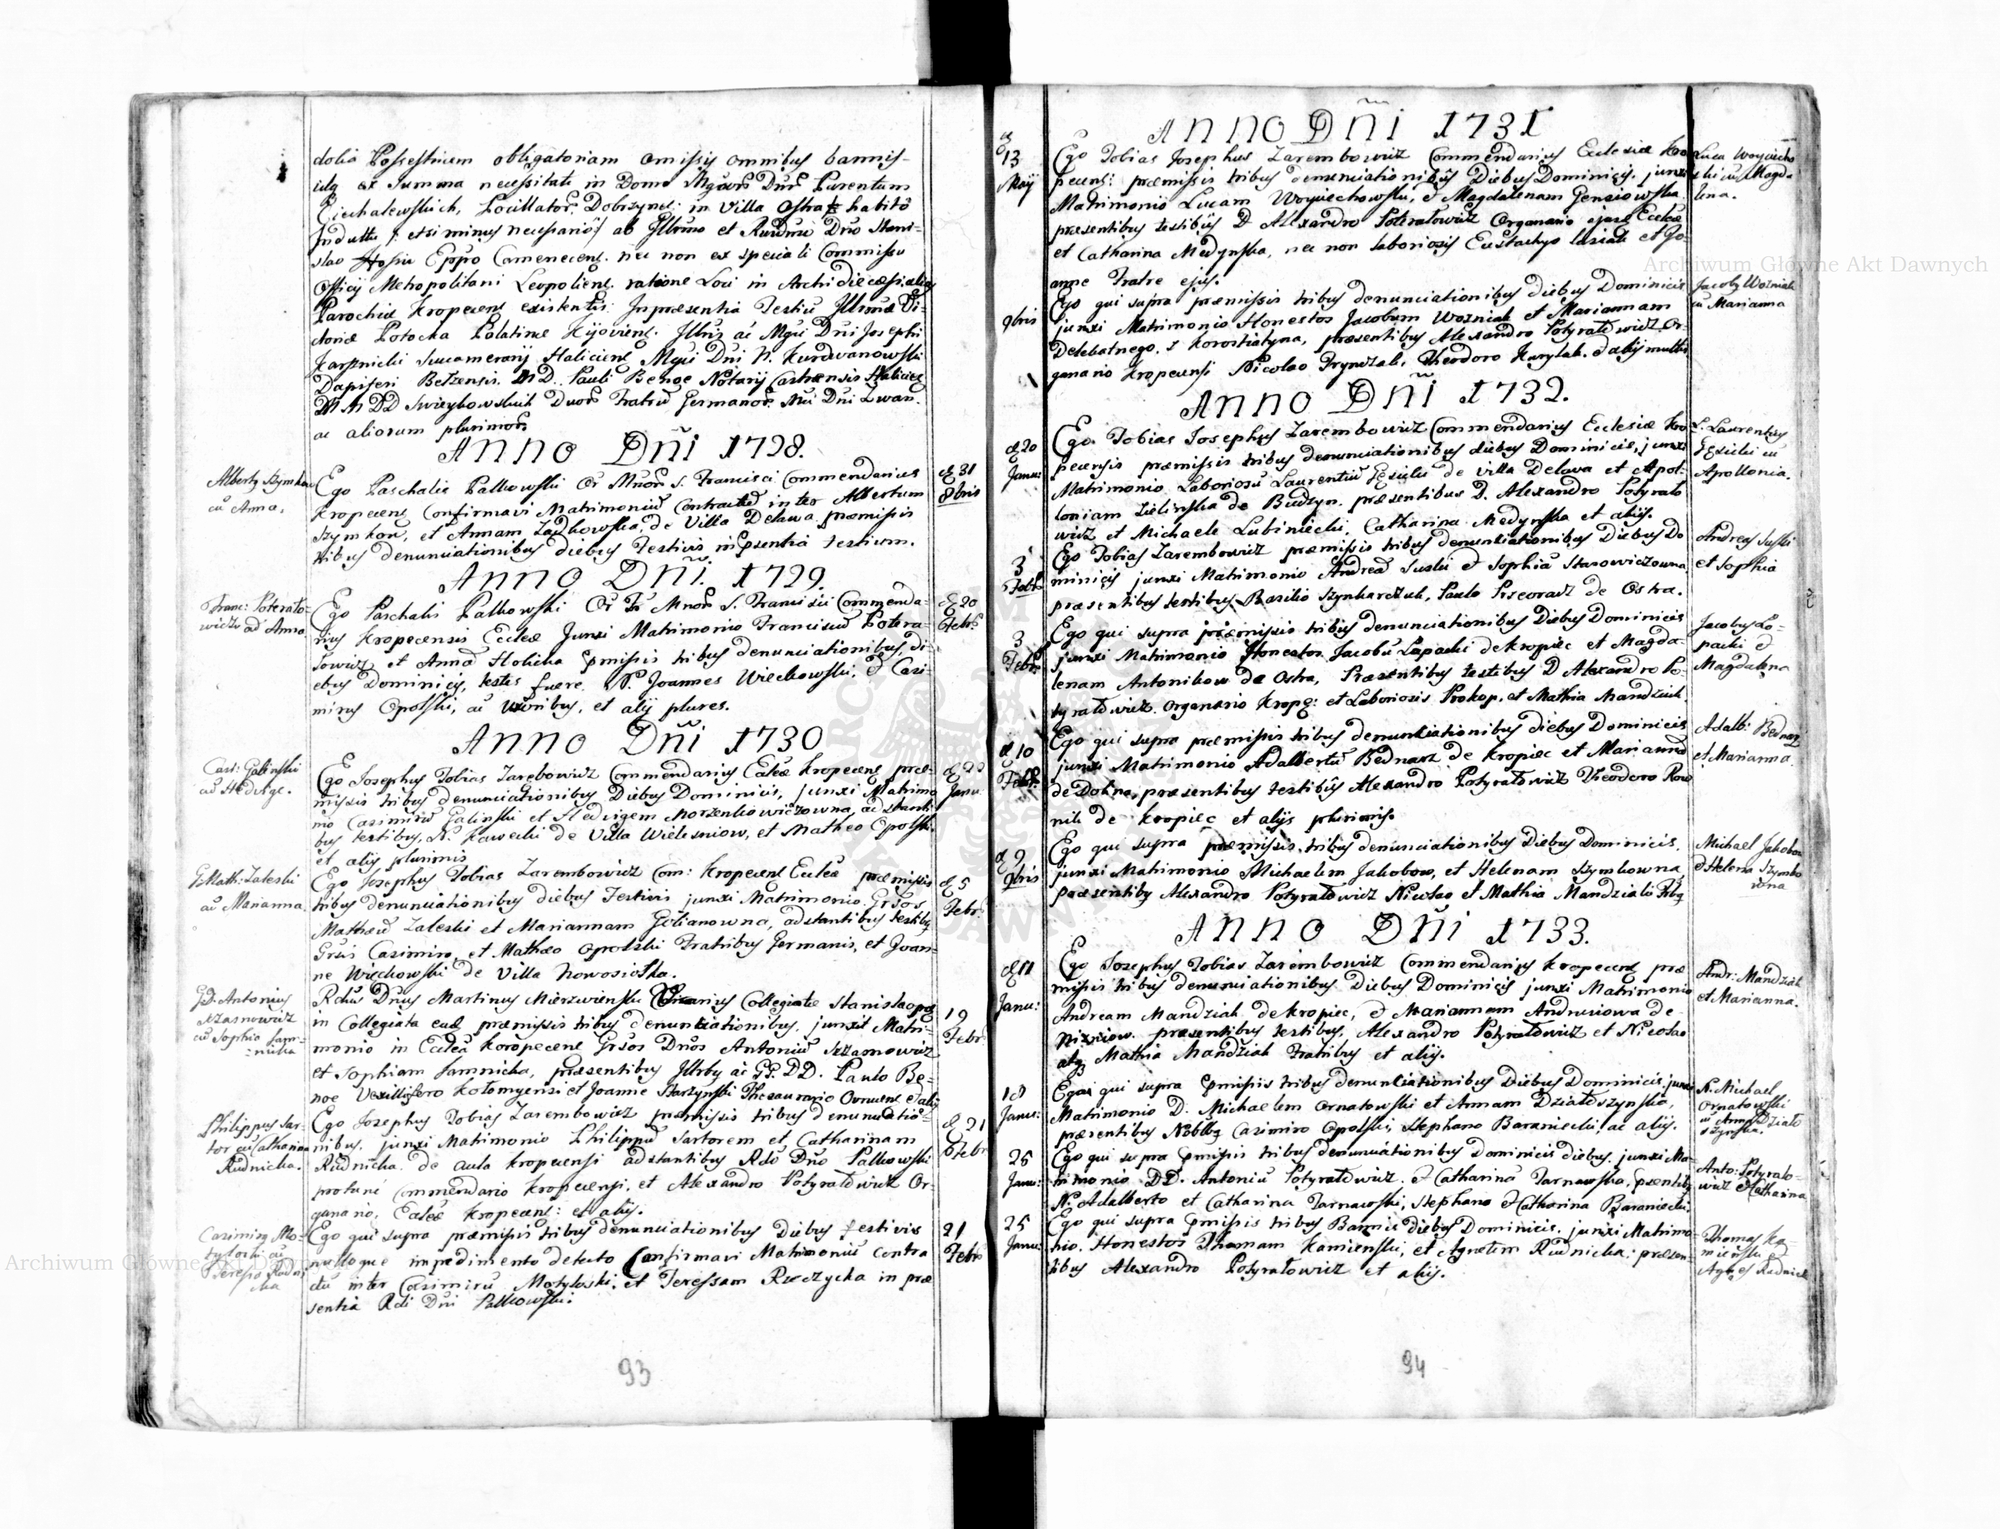 dolia Possessrium obligatoriam omissis omnibus bannis-
isq ex summa necessitate in Domo Mgcor Dnor Parentum
Ciechalewskich, Pocillator: Dobrzyns: in Villa Ostra habito
Indultu / etsi minus necessario / ab Illrimo et Rndmo Dno Stani-
slao Hosiu Eppo Camenecens: nec non ex speciali Commissu
Officij Metropolitani Leopoliens: ratione Loci in Archidiecesi
Parochiæ Kropecens existentis: In præsentia Testiu Illrmæ Vi-
ctoriæ Potocka Palatinæ Kijoviens: Illris ac Mgci Dni Josephi
Karsznicki Succamerarij Haliciens Mgci Dni N. Kurdwanowski
Dapiferi Betzensis. M D. Pauli Benoe Notarij Castrensis Halicies
M M DD Swieykowskich Duor Fratru Germanor. Mci Dni Zwan.
ac aliorum plurimor
Anno Dñi 1728.
Alberty Szymkow
cu Anna.
Ego Paschalis Palkowski Or Mnor S. Francisci Commendarius
Kropecens Confirmavi Matrimoniu Contractu inter Albertum
Szymkow, et Annam Zadkowska, de Villa Delawa præmissis
tribus denunciationibus diebus Festivis in præsentia testium.
d 31
8bris
Anno Dñi. 1729.
Franc: Poterato-
wicz ad Anna
Ego Paschalis Palkowski Or Fr Mnor S. Francisci Commenda-
rius Kropecensis Eccleæ Junxi Matrimonio Franciscu Potera-
towicz et Anna Holicka præmissis tribus denunciationibus, di-
ebus Dominicis, testes fuere. N. Joannes Wieckowski, & Casi-
mirus Opolski, ac Uxoribus, et alij plures.
d 20
Febr:
Anno Dñi 1730
Cas: Galinski
ad Hedvige.
Ego Josephus Tobias Zarebowicz Commendarius Eccleæ Kropecens præ-
missis tribus denunciationibus Diebus Dominicis, junxi Matrimo
nio Casimiru Galinski et Hedvigem Morzenkowiczowna, adstanti
bus testibus, N. Kawecki de Villa Wielesniow, et Matheo Opolski.
et alijs plurimis
Janu:
G. Math: Zaleski
au Marianna.
Ego Josephus Tobias Zarembowicz Com: Kropecens Eccleæ præmissis
tribus denunciationibus diebus Festivis junxi Matrimonio Grsos
Matheu Zaleski et Mariannam Golianowna, adstantibus testibus
Grsis Casimiro, et Matheo Opolski Fratribus Germanis, et Joan-
ne Wieckowski de Villa Nowosiołka.
d 5
Febr:
GD. Antonius
Szasnowicz
cu Sophia Jam-
nicka
Rdus Dnus Martinus Mierzwienski Vicarius Collegiatæ Stanislaopo
in Collegiata ead præmissis tribus denuntiationibus. junxit Matri-
monio in Ecclea Koropecens Grsos Dnos Antoniu Szasnowicz
et Sophiam Jamnicka, præsentibus Illrbs ac GG. DD. Paulo Be-
noe Vexillifero Kolomyensi et Joanne Starzynski Thesaurario Ovruens & alijs
19
Febr:
Philippus Sar-
tor cu Catharina
Rudnicka.
Ego Josephus Tobias Zarembowicz præmissis tribus denunciatio-
nibus. junxi Matrimonio Philippu Sartorem et Catharinam
Rudnicka. de aula Kropecensi adstantibus Rdo Dno Palkowski
protunc Commendario Kropecensi, et Alexandro Potyratowicz Or-
ganario, Eccleæ Kropecens: et alijs.
d 21
Febr
Casimirus Mo-
tylocki cu
Teressa Rudni
cka
Ego qui supra præmissis tribus denunciationibus Diebus festivis
nulloque impedimento detecto Confirmavi Matrimoniu Contra
ctu inter Casimiru Motyloski. et Teressam Rzeczycka in præ
sentia Rdi Dni Palkowski.
21
Febr
93
Anno Dñi 1731
d
13
Maij
Ego Tobias Josephus Zarembowicz Commendarius Ecclesiæ Kro
pecens: præmissis tribus denunciationibus Diebus Dominicis. junxi
Matrimonio Lucam Woyciechowski, & Magdalenam Gensiowska.
præsentibus testibus D Alexandro Poteratowicz Organario ejusd Eccleæ
et Catharina Medynska, nec non laboriosis Eustachyo lasiak et Jo-
anne Fratre ejus.
Luca Woyciecho
ski cu Magda
lena.
9bris
Ego qui supra præmissis tribus denunciationibus diebus Dominicis
junxi Matrimonio Honestos Jacobum Wozniak et Mariannam
Delebatnego. z Korosciatyna, præsentibus Alexandro Potyratowicz Or-
ganario Kropecensi Nicolao Prynczak, Theodoro Kurylak. & alijs multis
Jacoby Woźniak
cu Marianna
Anno Dñi 1732.
d 20
Janu:
Ego Tobias Josephus Zarembowicz Commendarius Ecclesiæ Kro
pecensis præmissis tribus denunciationibus diebus Dominicis, junxi
Matrimonio Laboriosu Laurentiu Gesicki de villa Delawa et Apol-
loniam Zielinska de Budzyn. præsentibus D. Alexandro Potyrato
wicz, et Michaele Lubiniecki, Catharina Medynska et alijs.
L. Laurentius
Gęsicki cu
Apollonia.
3
Febr:
Ego Tobias Zarembowicz præmissis tribus denunciationibus Diebus Do
minicis junxi Matrimonio Andrea Suski & Sophia Starowiczowna
præsentibus testibus Basilio Szynkarczuk, Paulo Przeoracz de Ostra.
Andreas Suski
et Sophia
3
Febr:
Ego qui supra præmissis tribus denunciationibus Diebus Dominicis
junxi Matrimonio Honestos Jacobu Łopacki de Kropiec et Magda
lenam Antonikow de Ostra, Præsentibus testibus D Alexandro Po-
tyratowicz. Organario Kropec: et Laboriosis Prokop. et Mathia Mandziak.
Jacobus Lo-
packi &
Magdalena
d 10
Febr.
Ego qui supra præmissis tribus denuntiationibus diebus Dominicis
junxi Matrimonio Adalbertu Bednarz de Kropiec et Marianna
de Dolina, præsentibus testibus Alexandro Potyratowicz Theodoro Kow
nik de Kropiec et alijs plurimis.
Adalb: Bednarz
et Marianna.
d 9
9bris
Ego qui supra præmissis tribus denunciationibus Diebus Dominicis.
junxi Matrimonio Michaelem Jakobow, et Helenam Szymkowna,
præsentibus Alexandro Potyratowicz Nicolao et Mathia Mandziak
Michael Jakobow
& Helena Szymko
wna
Anno Dñi 1733.
d 11
Janu:
Ego Josephus Tobias Zarembowicz Commendarius Kropecens præ
missis tribus denunciationibus Diebus Dominicis junxi Matrimonio
Andream Mandziak de Kropiec, & Mariannam Andrusiowa de
Nizniow. præsentibus testibus, Alexandro Potyratowicz et Nicolao
atq Mathia Mandziak Fratribus et alijs.
Andr: Mandziak
et Marianna.
18
Janu:
Ego qui supra præmissis tribus denuntiationibus Diebus Dominicis junxi
Matrimonio D. Michaelem Ornatowski et Annam Działoszynska,
præsentibus Nobblbs Casimiro Opolski, Stephano Baraniecki, ac alijs.
N. Michael
Ornatowski
cu Anna Działo
szynska.
25
Janu:
Ego qui supra præmissis tribus denunciationibus Dominicis diebus. junxi Ma-
trimonio DD. Antoniu Potyratowicz. & Catharina Tarnawska, præntibs
N. Adalberto et Catharina Tarnawski, Stephano & Catharina Baraniecki.
Anto: Potyrato-
wicz & Catharina
25
Janu:
Ego qui supra præmissis tribus Bannis diebus Dominicis. junxi Matrimo-
nio. Honestos Thomam Kamienski, et Agnetem Rudnicka: præsen-
tibus Alexandro Potyratowicz et alijs.
Thomas Ka-
mienski &
Agnes Rudnick
94
Archiwum Główne Akt Dawnych
Archiwum Główne Akt Dawnych